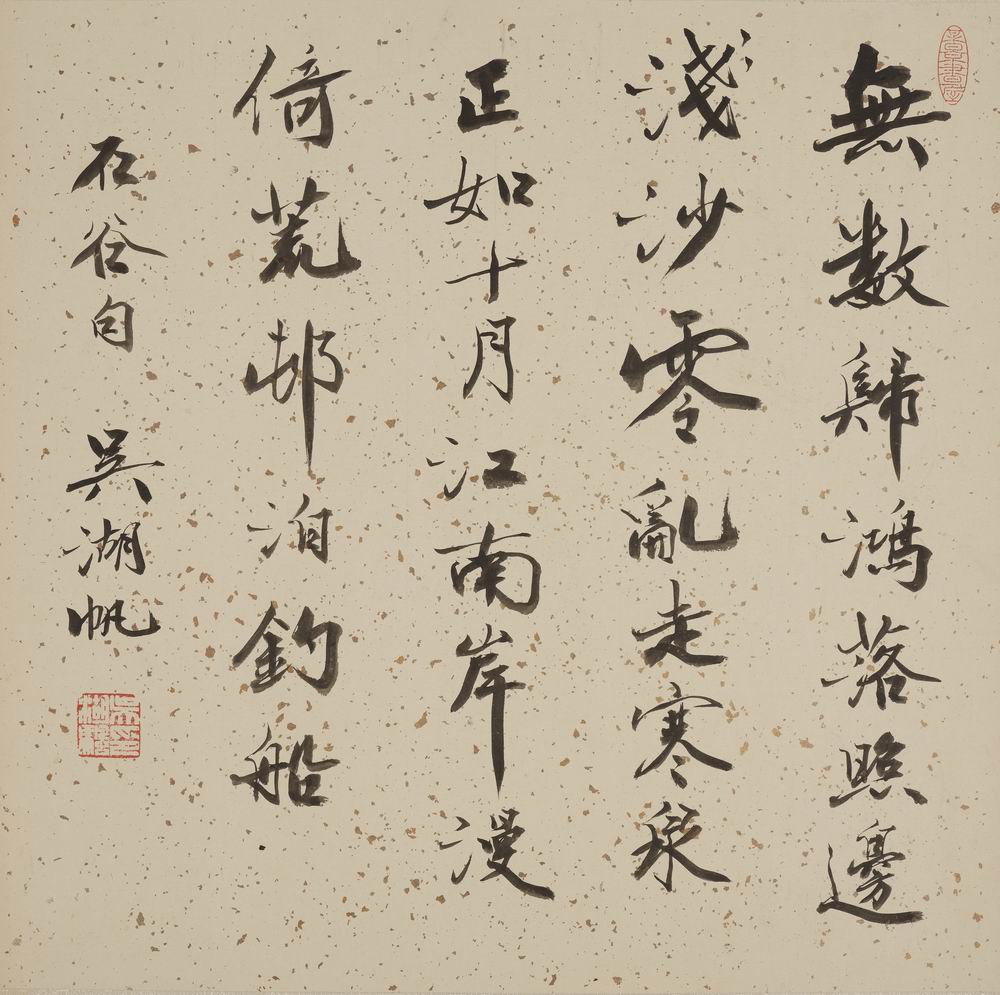 無數歸鴻落照邊
淺沙零亂走寒泉
正如十月江南岸漫
倚荒邨泊釣船
石谷句 吳湖帆